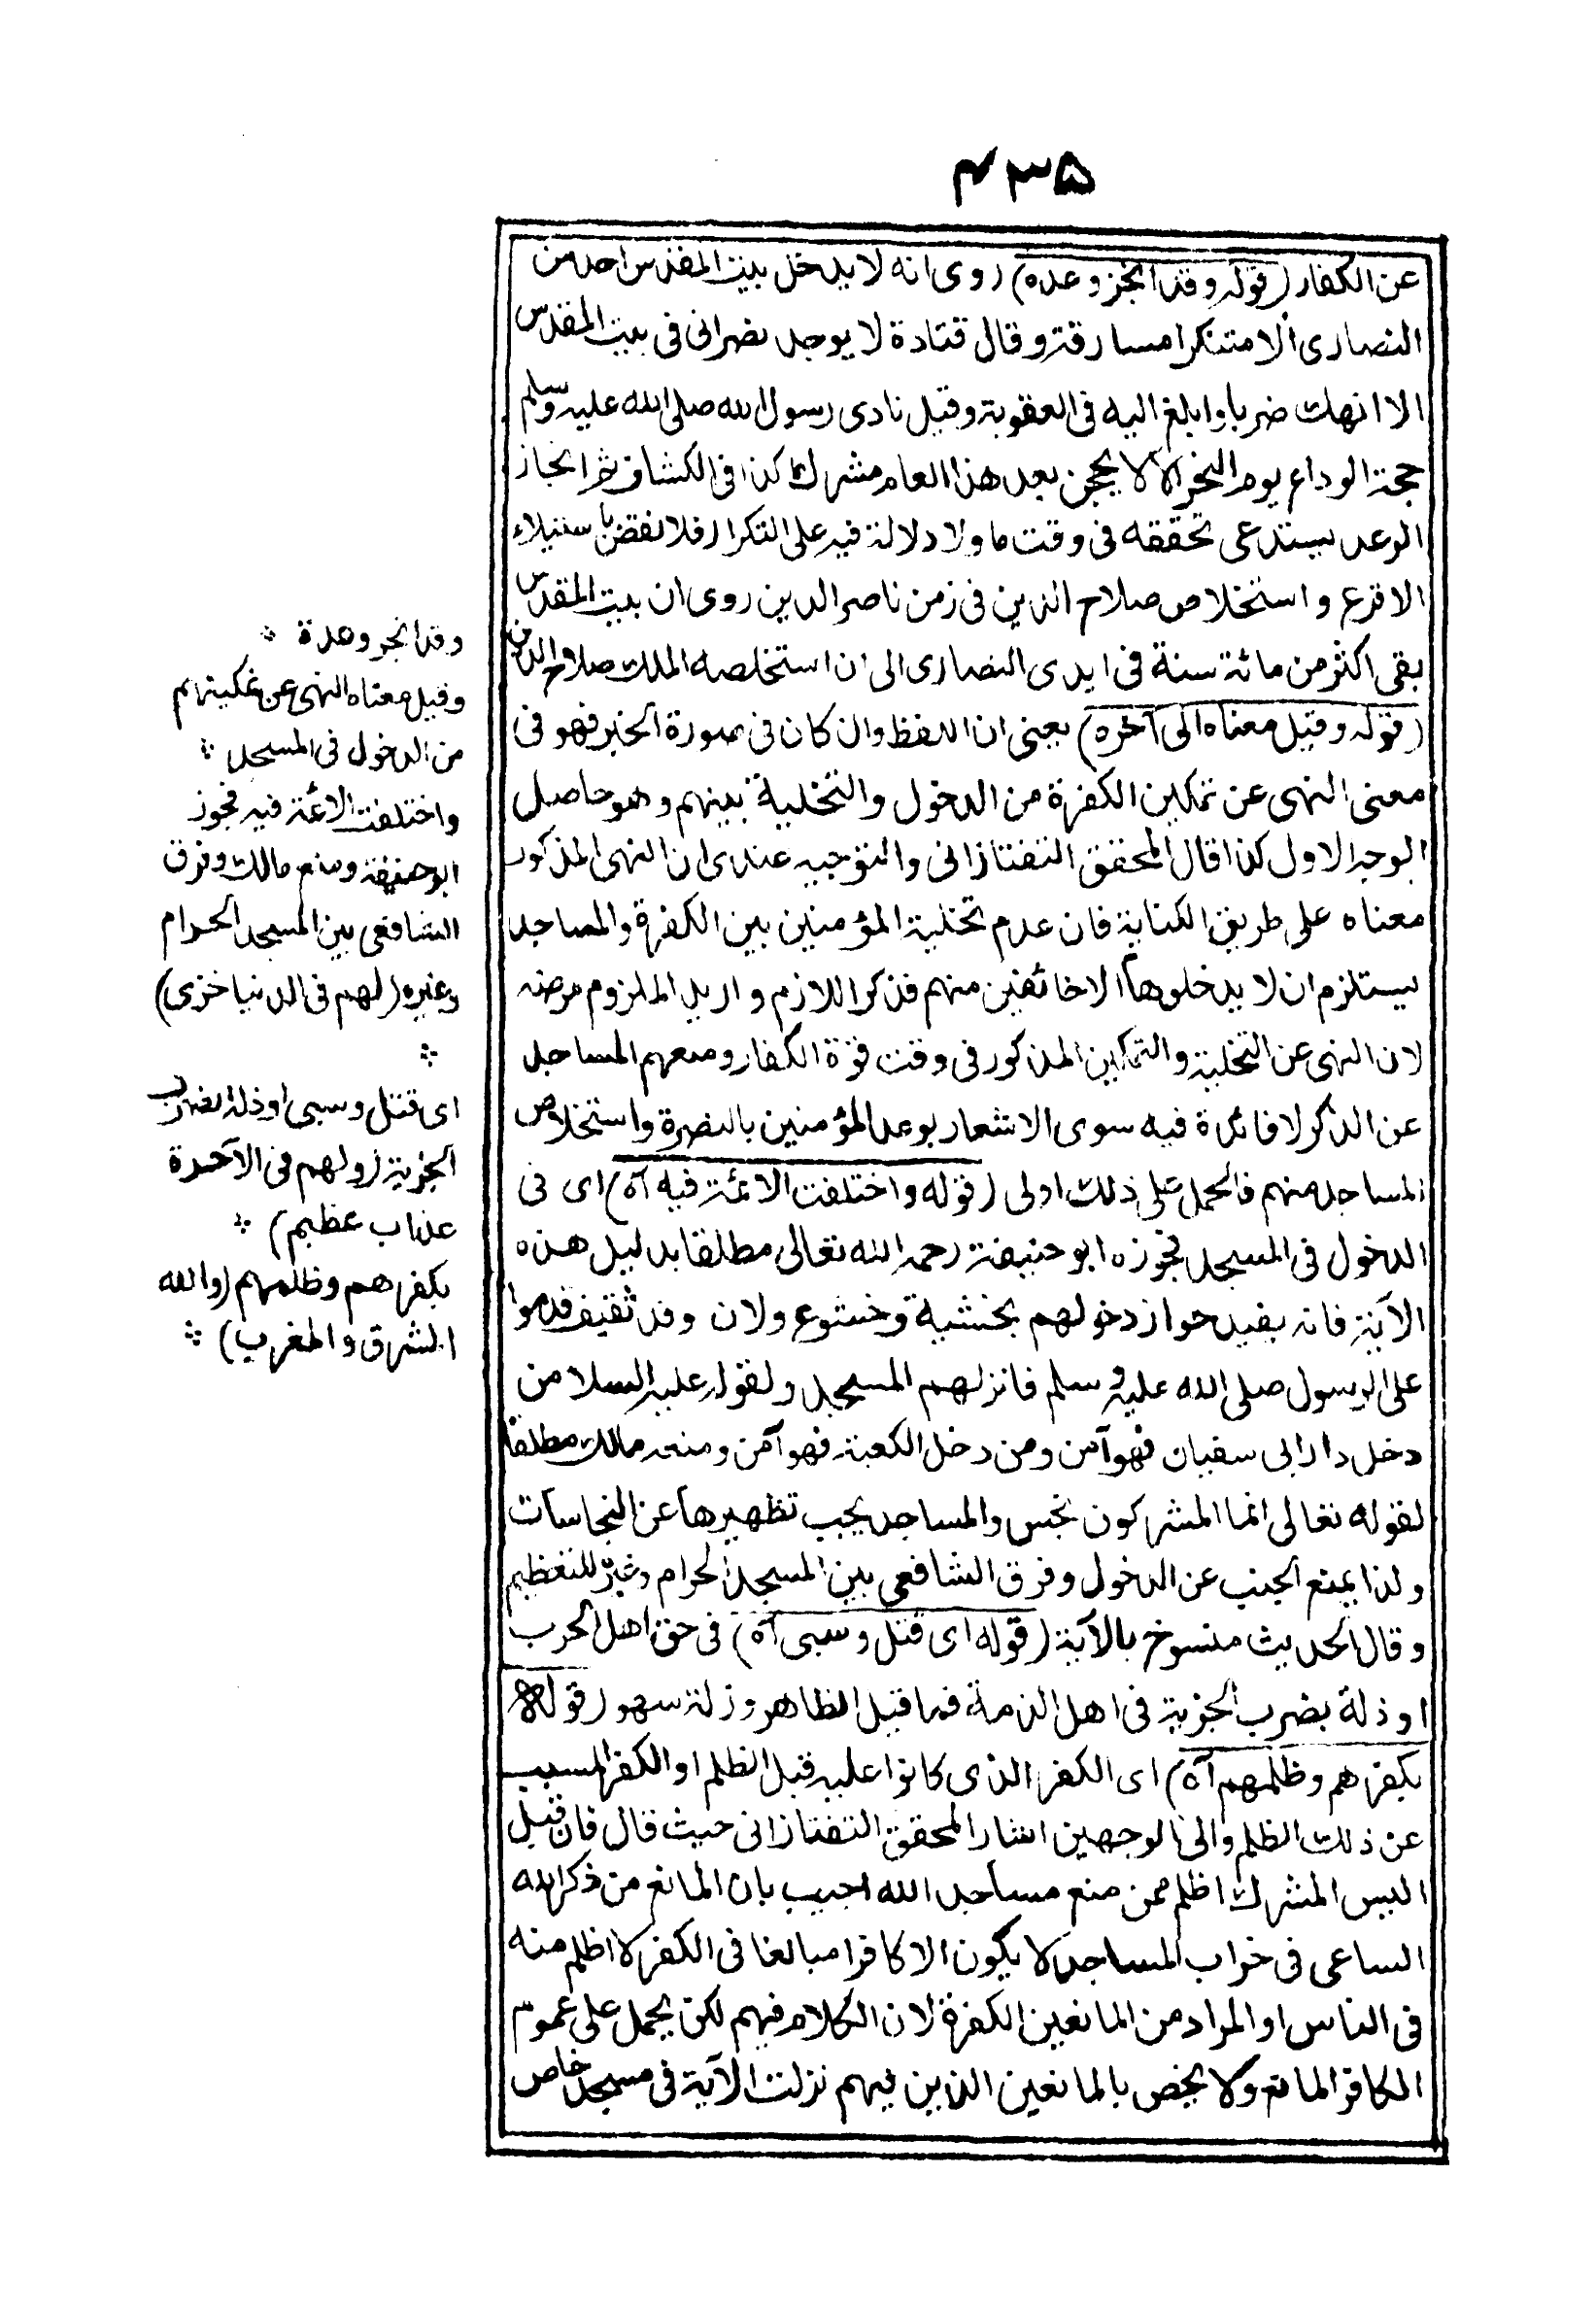 ۴۳۵
عن الكفار (قوله وقد انجز وعده) روى انه لا يدخل بيت المقدس احد من
النصارى الا متنكرا مسارقة وقال قتادة لا يوجد نصرانى فى بيت المقدس
الا انهك ضربا وابلغ اليه فى العقوبة وقيل نادى رسول الله صلى الله عليه وسلم
حجة الوداع يوم النحر الا لا يحجن بعد هذا العام مشرك كذا فى الكشاف ثم انجاز
الوعد يستدعى تحققه فى وقت ما ولا دلالة فيه على التكرار فلا نقض باستيلاء
الافرع واستخلاص صلاح الدين فى زمن ناصر الدين روى ان بيت المقدس
بقى اكثر من مائة سنة فى ايدى النصارى الى ان استخلصه الملك صلاح الدين
(قوله وقيل معناه الى آخره) يعنى ان اللفظ وان كان فى صورة الخبر فهو فى
معنى النهى عن تمكين الكفرة من الدخول والتخلية بينهم وهو حاصل
الوجه الاول كذا قال المحقق التفتازانى والتوجيه عندى ان النهى المذكور
معناه على طريق الكناية فان عدم تخلية المؤمنين بين الكفرة والمساجد
يستلزم ان لا يدخلوها الا خائفين منهم فذكر اللازم واريد الملزوم مرضه
لان النهى عن التخلية والتمكين المذكور فى وقت قوة الكفار ومنعهم المساجد
عن الذكر لا فائدة فيه سوى الاشعار بوعد المؤمنين بالنصرة واستخلاص
المساجد منهم فالحمل على ذلك اولى (قوله واختلفت الائمة فيه آه) اى فى
الدخول فى المسجد فجوزه ابو حنيفة رحمه الله تعالى مطلقا بدليل هذه
الآية فانه يفيد جواز دخولهم بخشية وخشوع ولان وفد ثقيف قدموا
على الرسول صلى الله عليه وسلم فانزلهم المسجد ولقوله عليه السلام من
دخل دار ابى سفيان فهو آمن ومن دخل الكعبة فهو آمن ومنعه مالك مطلقا
لقوله تعالى انما المشركون نجس والمساجد يجب تطهيرها عن النجاسات
ولذا يمنع الجنب عن الدخول وفرق الشافعى بين المسجد الحرام وغيره للتعظيم
وقال الحديث منسوخ بالآية (قوله اى قتل وسبى آه) فى حق اهل الحرب
او ذلة بضرب الجزية فى اهل الذمة فما قيل الظاهر وزلة سهو (قوله
بكفرهم وظلمهم آه) اى الكفر الذى كانوا عليه قبل الظلم او الكفر المسبب
عن ذلك الظلم والى الوجهين اشار المحقق التفتازانى حيث قال فان قيل
اليس المشرك اظلم ممن منع مساجد الله اجيب بان المانع من ذكر الله
الساعى فى خراب المساجد لا يكون الا كافرا مبالغا فى الكفر لا اظلم منه
فى الناس او المراد من المانعين الكفرة لان الكلام فيهم لكن يحمل على عموم
الكافر المانع ولا يخص بالمانعين الذين فيهم نزلت الآية فى مسجد خاص
وقد انجز وعدة
وقيل معناه النهى عن تمكينهم
من الدخول فى المسجد
واختلفت الائمة فيه فجوز
ابو حنيفة ومنع مالك وفرق
الشافعى بين المسجد الحرام
وغيره (لهم فى الدنيا خزى)
اى قتل وسبى او ذلة بضرب
الجزية (ولهم فى الآخرة
عذاب عظيم)
بكفرهم وظلمهم (والله
المشرق والمغرب)